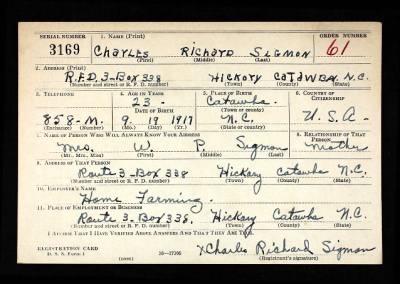 SERIAL NUMBER 1. NAME (Print) ORDER NUMBER
3169 CHARLES RICHARD SIGMON 61
(First) (Middle) (Last)
2. ADDRESS (Print)
R.F.D. 3-BOX 338 HICKORY CATAWBA N.C.
(Number and street or R. F. D. number) (Town) (County) (State)
3. TELEPHONE 4. AGE IN YEARS 5. PLACE OF BIRTH 6. COUNTRY OF CITIZENSHIP
23 Catawba
DATE OF BIRTH (Town or county)
858-M. 9. 19 1917 N.C. U.S.A.
(Exchange) (No.) (Mo.) (Day) (Yr.) (State or country)
7. NAME OF PERSON WHO WILL ALWAYS KNOW YOUR ADDRESS 8. RELATIONSHIP OF THAT PERSON
Mrs. W. P. Sigmon Mother
(Mr., Mrs., Miss) (First) (Middle) (Last)
9. ADDRESS OF THAT PERSON
Route 3-Box 338 Hickory Catawba N.C.
(Number and street or R. F. D. number) (Town) (County) (State)
10. EMPLOYER'S NAME
Home Farming.
11. PLACE OF EMPLOYMENT OR BUSINESS
Route 3-Box 338. Hickory Catawba N.C.
(Number and street or R. F. D. number) (Town) (County) (State)
I AFFIRM THAT I HAVE VERIFIED ABOVE ANSWERS AND THAT THEY ARE TRUE.
REGISTRATION CARD x Charles Richard Sigmon
D. S. S. FORM 1 (over) 16-17105 (Registrant's signature)